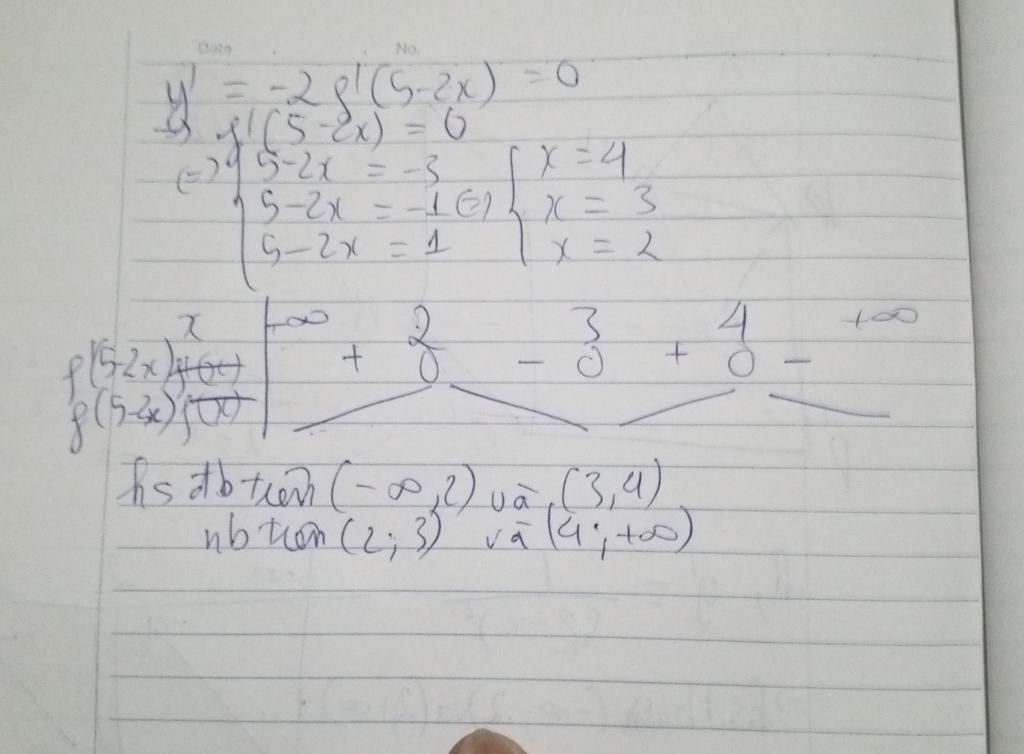 Date . . No.
y' = -2 f'(5-2x) = 0
→ f'(5-2x) = 0
(=) { 5-2x = -3 [ x = 4
5-2x = -1 (=) x = 3
5-2x = 1 x = 2
x | +∞ 2 3 4 +∞
f'(5-2x) f'(x) + 0 - 0 + 0 -
f(5-2x) f(x)
hs đb trên (-∞, 2) và (3,4)
nb trên (2; 3) và (4; +∞)